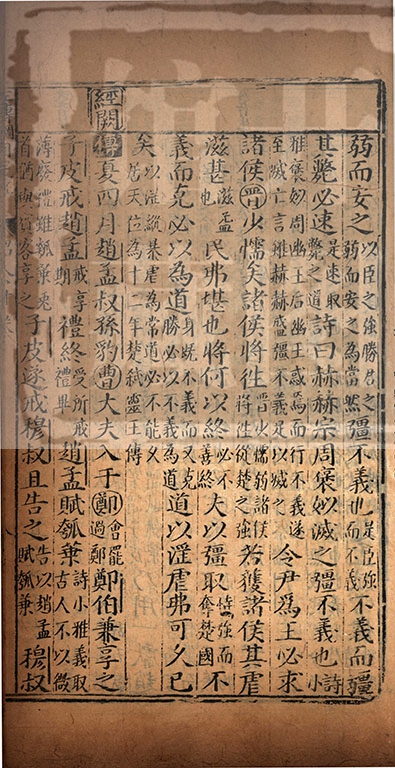 弱而安之以臣之強勝君之弱而安之為當然彊不義也是臣強而不義不義而彊
其斃必速是速取斃之道詩曰赫赫宗周褒姒滅之彊不義也詩小
雅褒姒周幽王后幽王惑焉而行不義遂至滅亡言雖赫赫盛彊不義足以滅之令尹爲王必求
諸侯晉少懦矣諸侯將往晉少懦弱諸侯將往從楚之強若獲諸侯其虐
滋甚滋益也民弗堪也將何以終必不善終夫以彊取恃強而奪楚國不
義而克必以為道身既不義而又克勝必以不義為道道以淫虐弗可久已
矣以淫縱暴虐為常道必不能久若天位為十三年楚弒靈王傳
經闕傳夏四月趙孟叔孫豹曹大夫入于鄭會罷過鄭鄭伯兼享之
子皮戒趙孟戒享期禮終受所戒禮畢趙孟賦瓠葉詩小雅義取古人不以微
薄廢禮雖瓠葉兔首猶與賓客享之子皮遂戒穆叔且告之告以趙孟賦瓠葉穆叔